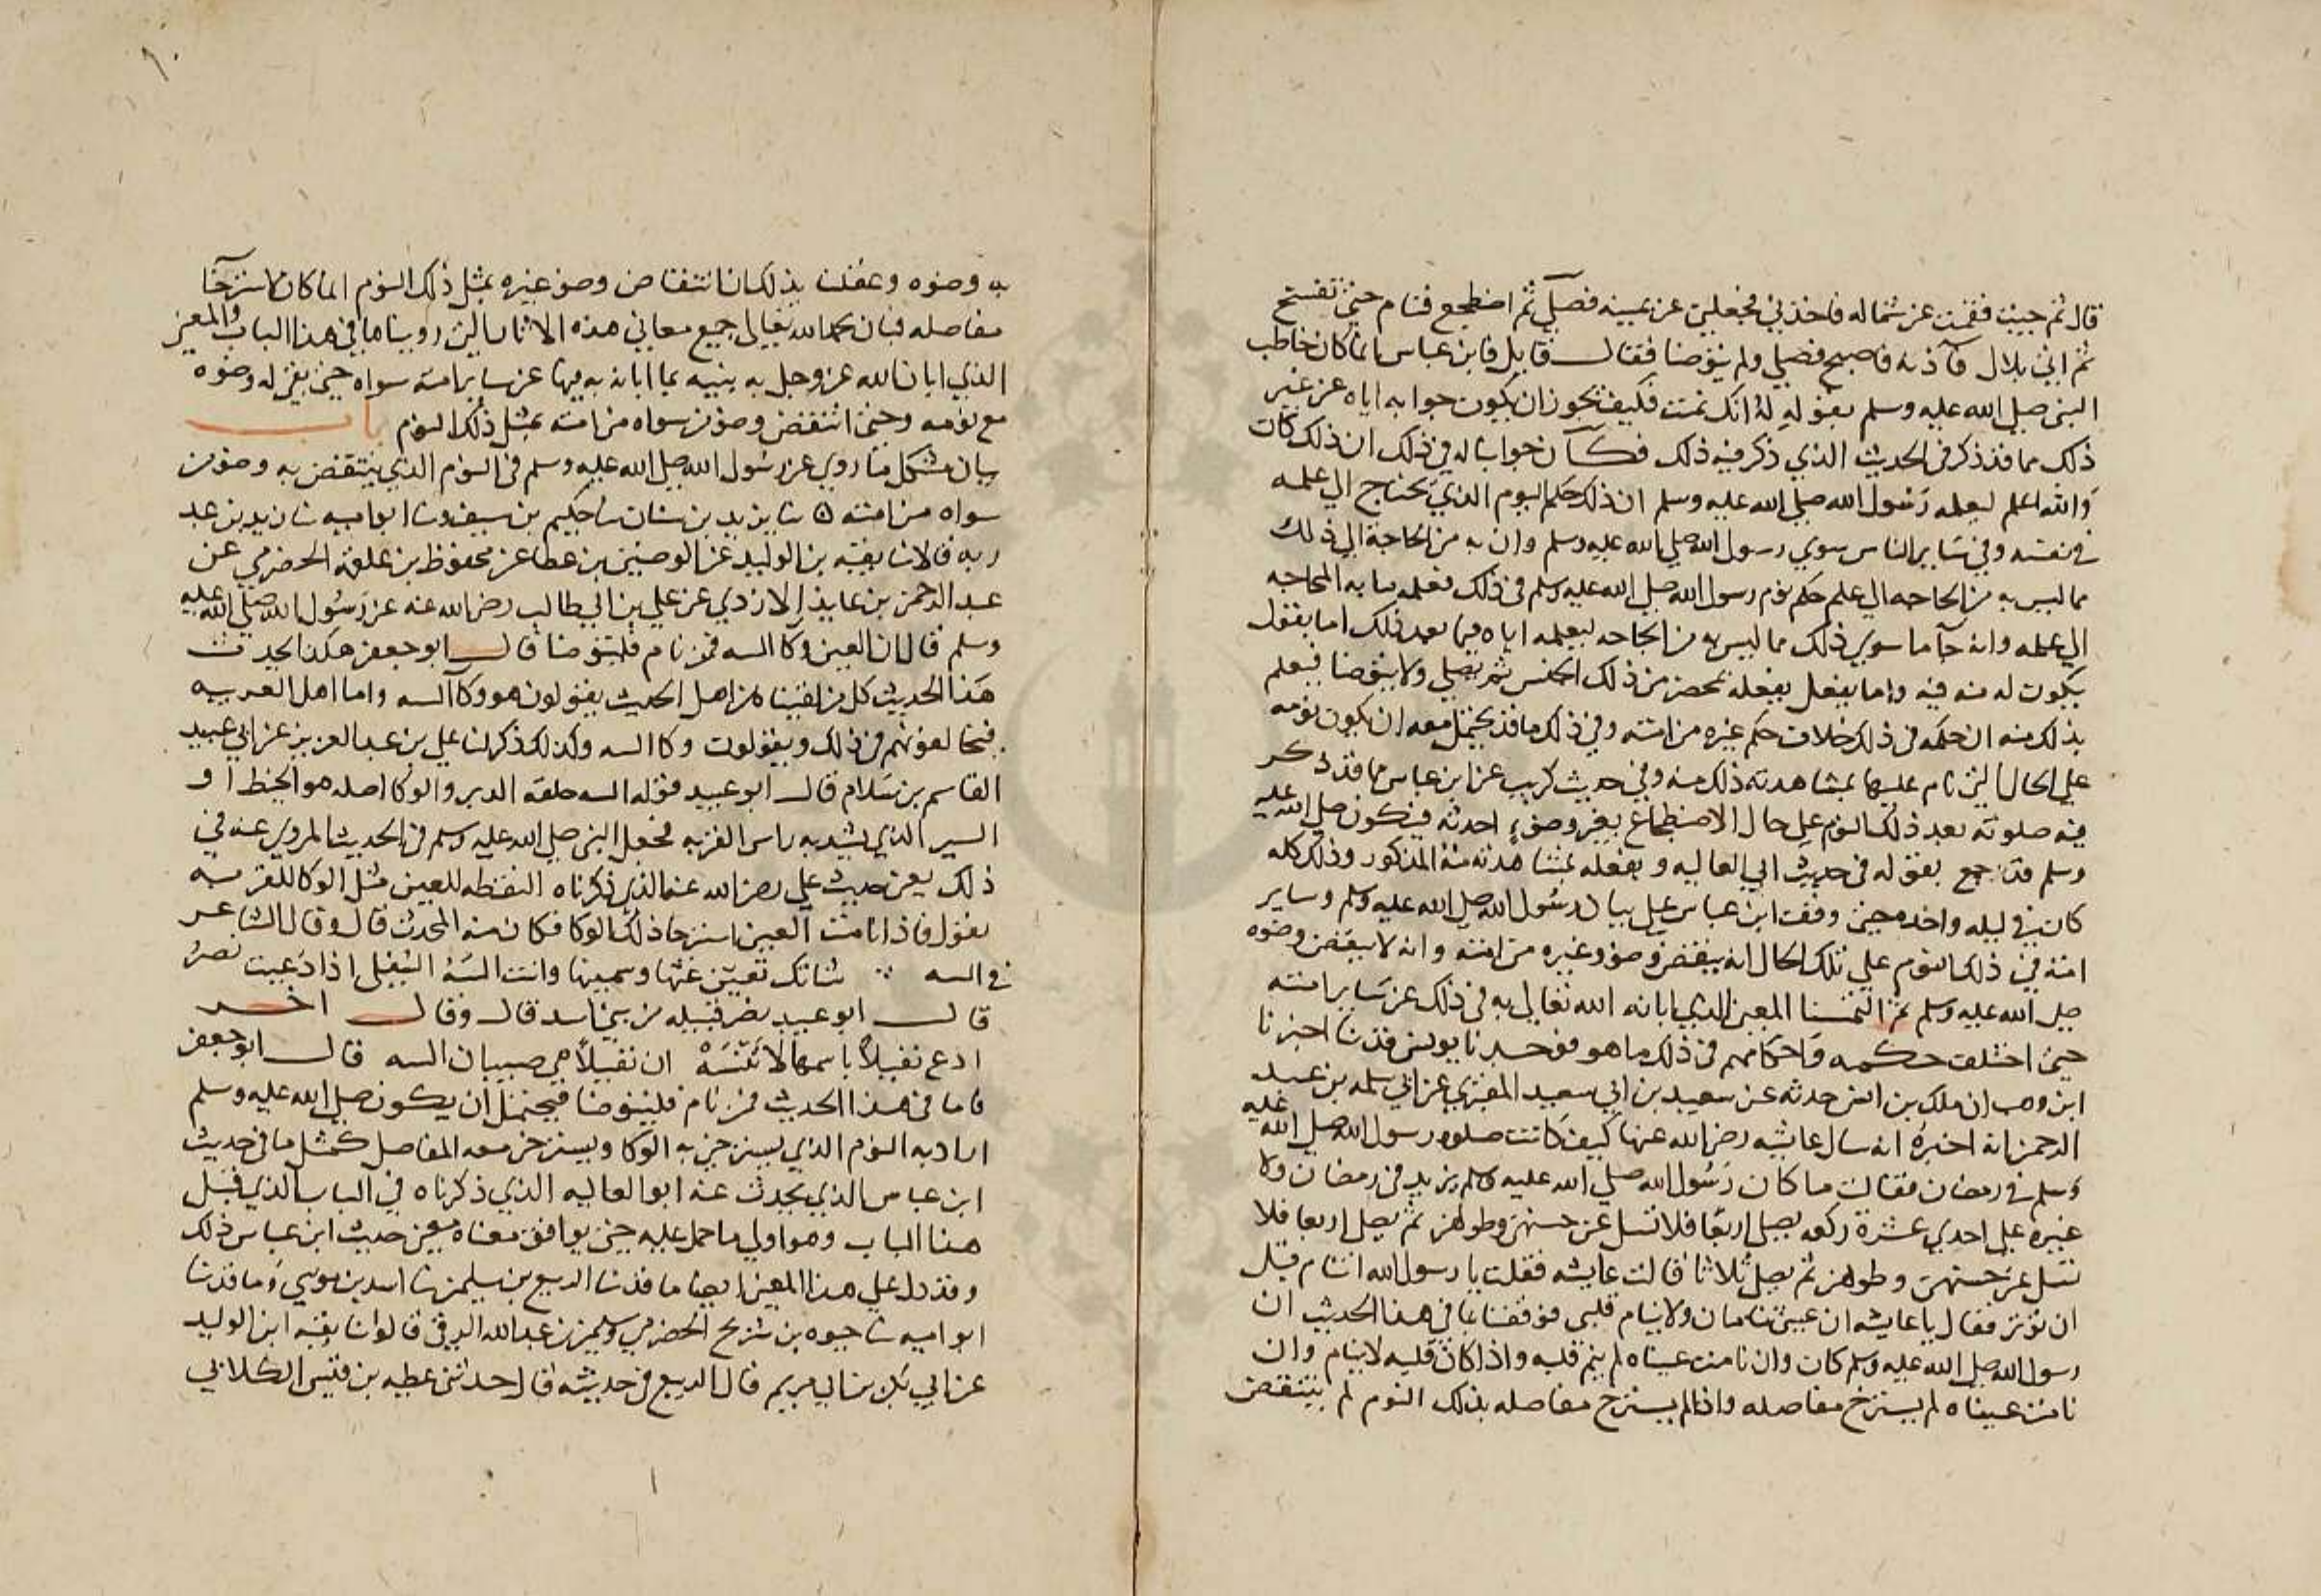 قال ثم جيت فقمت عن شماله فاخذني فجعلني عن يمينه فصلي ثم اضطجع فنام حتي نفخ
ثم اتي بلال فآذنه فاصبح فصلي ولم يتوضا فقال قايل فابن عباس انما كان خاطب
النبي صلي الله عليه وسلم بقوله له انك نمت فكيف يجوز ان يكون جوابه اياه عن غير
ذلك مما قد ذكر في الحديث الذي ذكر فيه ذلك فكان جوابنا له في ذلك ان ذلك كان
والله اعلم ليعلمه رسول الله صلي الله عليه وسلم ان ذلك حكم النوم الذي يحتاج الي علمه
في نفسه وفي ساير الناس سوي رسول الله صلي الله عليه وسلم وان به من الحاجة الي ذلك
مما ليس به من الحاجه الي علم حكم نوم رسول الله صلي الله عليه وسلم في ذلك فعلمه ما به الحاجه
الي علمه وانه جآ ما سوي ذلك مما ليس به من الحاجه ليعلمه اياه فيما بعد ذلك اما بقول
يكون له منه فيه واما بفعل يفعله بحضرته من ذلك الجنس ثم يصلي ولا يتوضا فيعلم
بذلك منه ان حكمه في ذلك خلاف حكم غيره من امته وفي ذلك ما قد يحتمل معه ان يكون نومه
علي الحال التي نام عليها بمشاهدته ذلك منه وفي حديث كريب عن ابن عباس ما قد ذكر
فيه صلوته بعد ذلك النوم علي حال الاضطجاع بغير وضوء احدثه فيكون صلي الله عليه
وسلم قد جمع بقوله في حديث ابي العاليه وبفعله بمشاهدته منه المذكور وذلك كله
كان في ليله واحده حتي وقف ابن عباس علي بيان رسول الله صلي الله عليه وسلم وساير
امته في ذلك النوم علي تلك الحال انه ينقض وضوء غيره من امته وانه لا ينقض وضوه
صلي الله عليه وسلم ثم التمسنا المعني الذي ابانه الله تعالي به في ذلك عن ساير امته
حتي اختلف حكمه واحكامهم في ذلك ما هو فوجدنا يونس قد نا اخبرنا
ابن وهب ان ملك بن انس حدثه عن سعيد بن ابي سعيد المقبري عن ابي سلمه بن عبد
الرحمن انه اخبره انه سال عايشه رضي الله عنها كيف كانت صلوة رسول الله صلي الله عليه
وسلم في رمضان فقالت ما كان رسول الله صلي الله عليه وسلم يزيد في رمضان ولا
غيره علي احدي عشرة ركعه يصلي اربعا فلا تسل عن حسنهن وطولهن ثم يصلي اربعا فلا
تسل عن حسنهن وطولهن ثم يصلي ثلاثا قالت عايشه فقلت يا رسول الله اتنام قبل
ان توتر فقال يا عايشه ان عيني تنامان ولا ينام قلبي فوقفنا بما في هذا الحديث ان
رسول الله صلي الله عليه وسلم كان وان نامت عيناه لم ينم قلبه واذا كان قلبه لا ينام وان
نامت عيناه لم يسترخ مفاصله واذا لم يسترخ مفاصله بذلك النوم لم ينتقض
٩٠
به وضوه وعقلنا بذلك ان انتقاض وضوء غيره بمثل ذلك النوم انما كان لاسترخآ
مفاصله فبان بحمد الله تعالي جميع معاني هذه الاثار التي رويناها في هذا الباب والمعني
الذي ابان الله عز وجل به نبيه بما ابانه به فيها عن ساير امته سواه حتي بقي له وضوه
مع نومه وحتي انتقض وضوء من سواه من امته بمثل ذلك النوم باب
بيان مشكل ما روي عن رسول الله صلي الله عليه وسلم في النوم الذي ينتقض به وضو من
سواه من امته ثنا يزيد بن سنان ثنا حكيم بن سيف وثنا ابو اميه ثنا يزيد بن عبد
ربه قالا ثنا بقيه بن الوليد عن الوضين بن عطا عن محفوظ بن علقمه الحضرمي عن
عبد الرحمن بن عايذ الازدي عن علي بن ابي طالب رضي الله عنه عن رسول الله صلي الله عليه
وسلم قال ان العين وكا السه فمن نام فليتوضا قال ابو جعفر هكذا يحدث
هذا الحديث كل من لقيناه من اهل الحديث يقولون هو وكآ السه واما اهل العربيه
فيخالفونهم في ذلك ويقولون وكا السه وكذلك ذكر لنا علي بن عبد العزيز عن ابي عبيد
القاسم بن سلام قال ابو عبيد قوله السه حلقه الدبر والوكا اصله هو الخيط او
السير الذي يشد به راس القربه فجعل النبي صلي الله عليه وسلم في الحديث المروي عنه في
ذلك يعني حديث علي رضي الله عنه الذي ذكرناه اليقظه للعين مثل الوكا للقربه
يقول فاذا نامت العين استرخا ذلك الوكا فكان منه الحدث قال وقال الشاعر
في السه ∴ شاتك قعين غثها وسمينها وانت السه السفلي اذا دعيت نصر
قال ابو عبيد نصر قبيله من بني اسد قال وقال اخر
ادع نفيلا باسمها لا تنسه ان نفيلا هي صيبان السه قال ابو جعفر
فاما في هذا الحديث فمن نام فليتوضا فيحتمل ان يكون صلي الله عليه وسلم
اراد به النوم الذي يسترخي به الوكا ويسترخي معه المفاصل كمثل ما في حديث
ابن عباس الذي يحدث عنه ابو العاليه الذي ذكرناه في الباب الذي قبل
هذا الباب وهو اولي ما حمل عليه حتي يوافق معناه معني حديث ابن عباس ذلك
وقد دل علي هذا المعني ايضا ما قد ثنا الربيع بن سليمن ثنا اسد بن موسي وما قد ثنا
ابو اميه ثنا حيوه بن شريح الحضرمي وسليمن بن عبد الله الرقي قالوا ثنا بقيه ابن الوليد
عن ابي بكر بن ابي مريم قال الربيع في حديثه قال حدثني عطيه بن قيس الكلابي